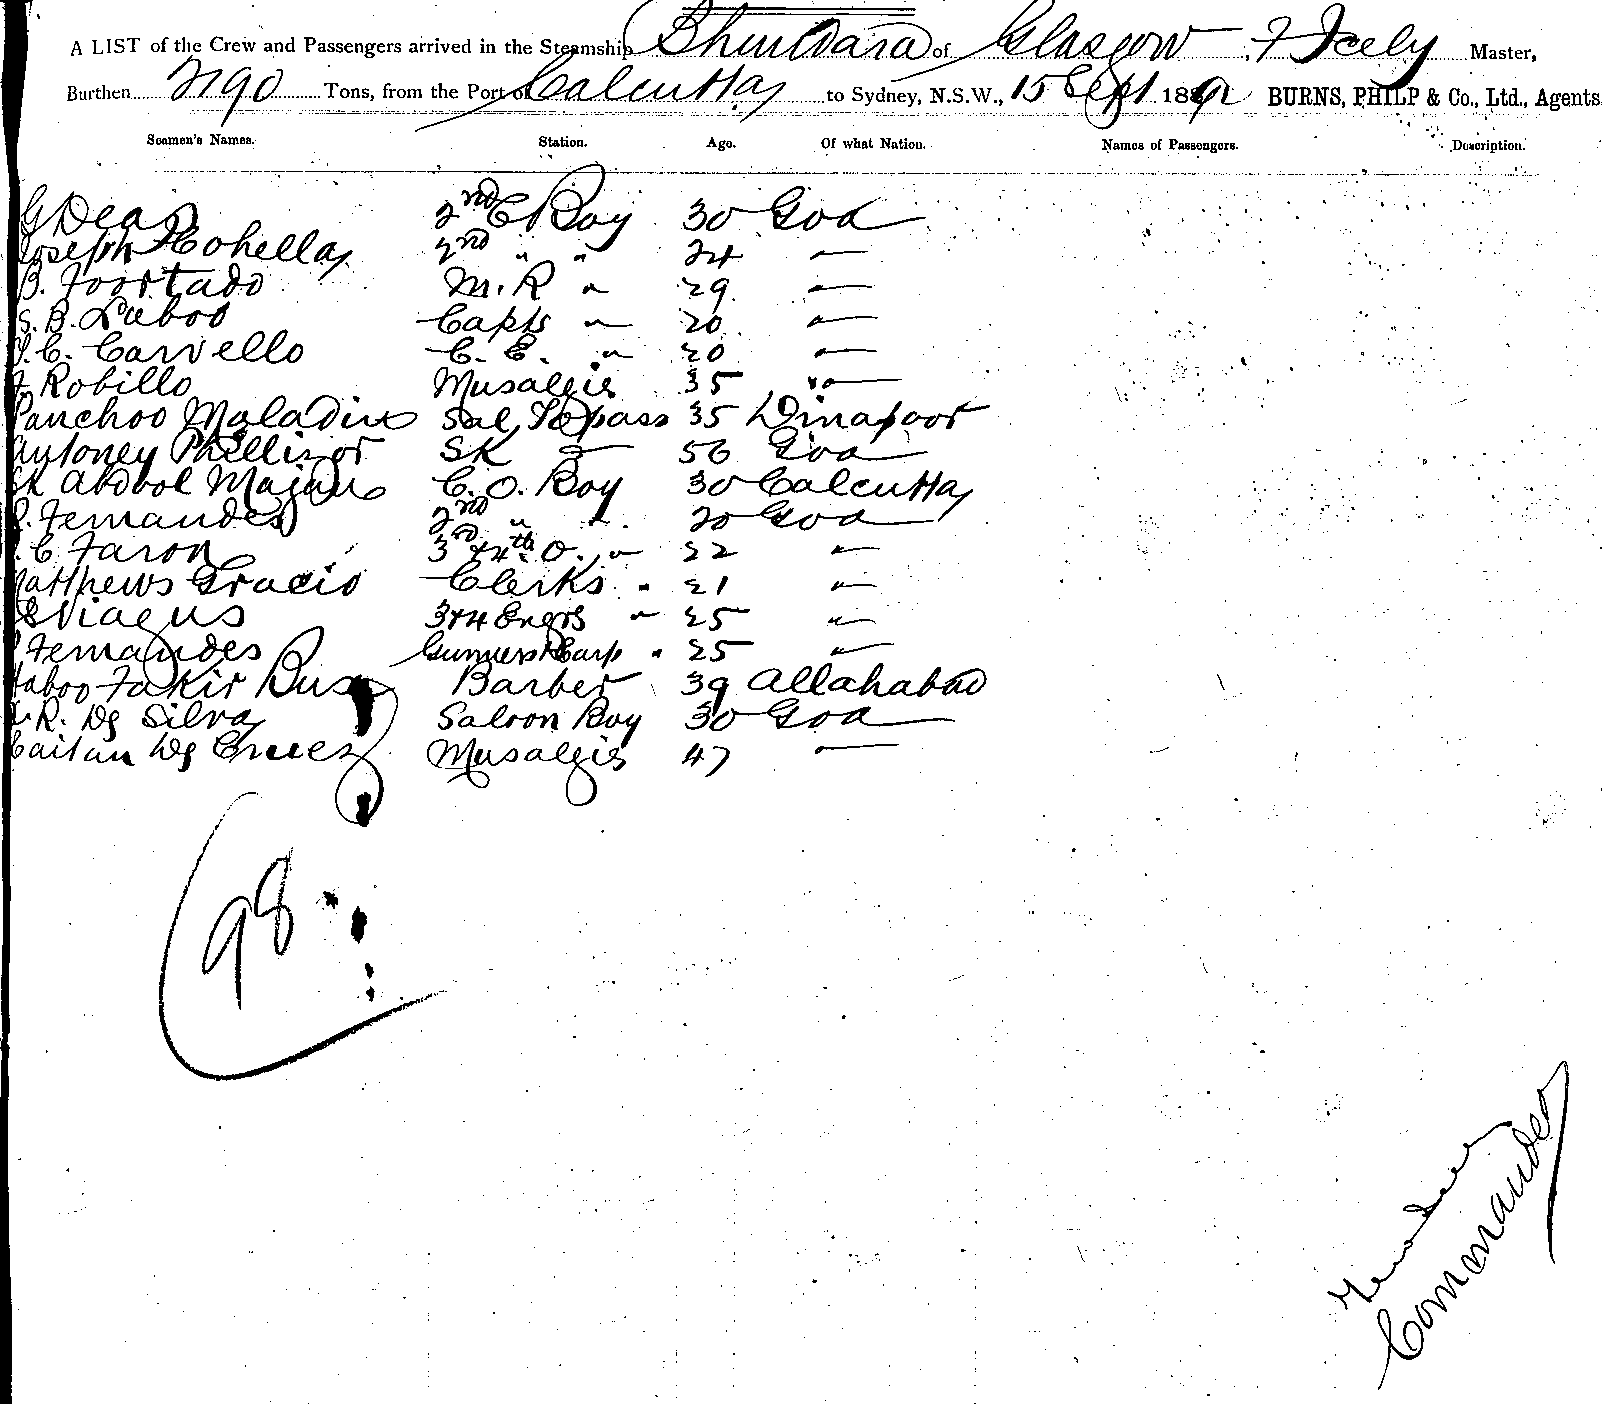 A LIST of the Crew and Passengers arrived in the Steamship Bhundara of Glasgow, F Icely Master,
Burthen 2190 Tons, from the Port of Calcutta to Sydney, N.S.W., 15 Sept 1892 BURNS, PHILP & Co., Ltd., Agents
Seamen's Names. Station. Age. Of what Nation. Names of Passengers. Description.
G Deas 2nd C Boy 30 Goa
Joseph Rohella 2nd " " 24 —
B. Foortado M. R " 29 —
S. B. Luboo Capts " 20 —
C. Carvello C. E. " 20 —
Robillo Musalgie 35 " —
Panchoo Maladin Sal Topass 35 Dinapoor
Antoney Phillizor SK 56 Goa
SK Abdool Majan C. O. Boy 30 Calcutta
Fernandes 2nd " " 20 Goa
C Faron 3rd & 4th O. " 22 "
Matthews Gracio Clerks " 21 "
Viagus 3 & 4 Engrs " 25 "
Fernandes Gunners & Carp " 25 "
Baboo Fakir Bux Barber 39 Allahabad
R. De Silva Saloon Boy 30 Goa
Caitan De Cruez Musalgie 47 —
98
Commander